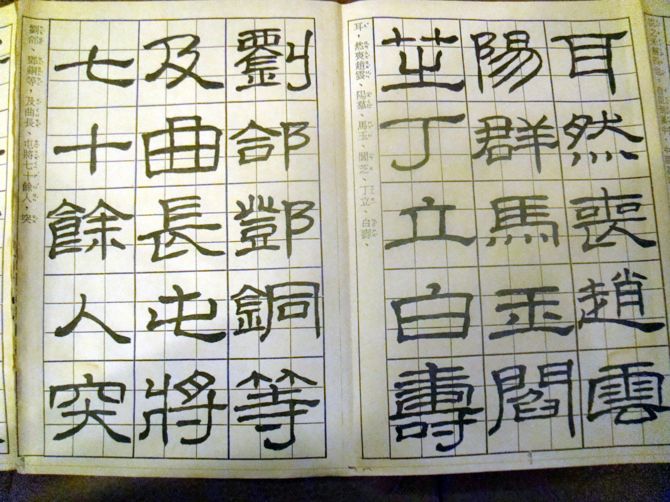 耳然喪趙雲
陽群馬玉閻
芝丁立白壽
耳，然喪趙雲、陽羣、馬玉、閻芝、丁立、白壽、
劉郃鄧銅等
及曲長屯將
七十餘人突
劉郃、鄧銅等、及曲長、屯將七十餘人、突